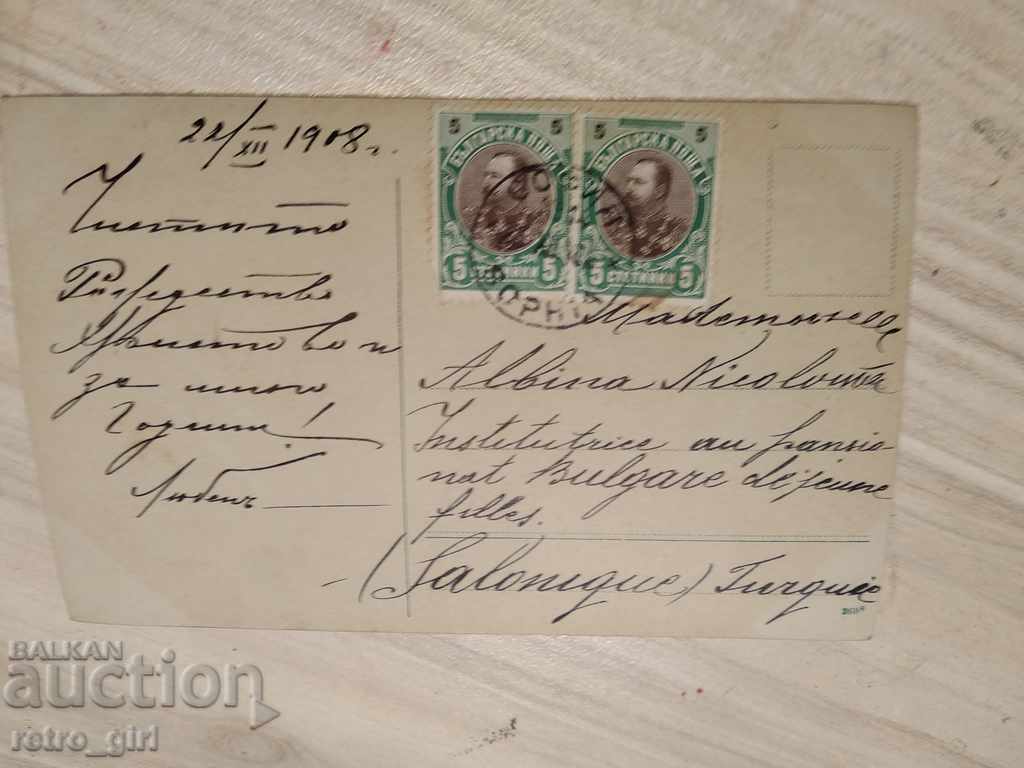 22/XII 1908 г.
Честито
Рождество
Христово и
за много
Години!
Любенъ
5 5
БЪЛГАРСКА ПОЩА
5 СТОТИНКИ 5
5 5
БЪЛГАРСКА ПОЩА
5 СТОТИНКИ 5
Mademoiselle
Albina
Institutrice au pensio-
nat Bulgare de jeune
filles.
(Salonique) Turquie
BALKAN
auction
retro_girl